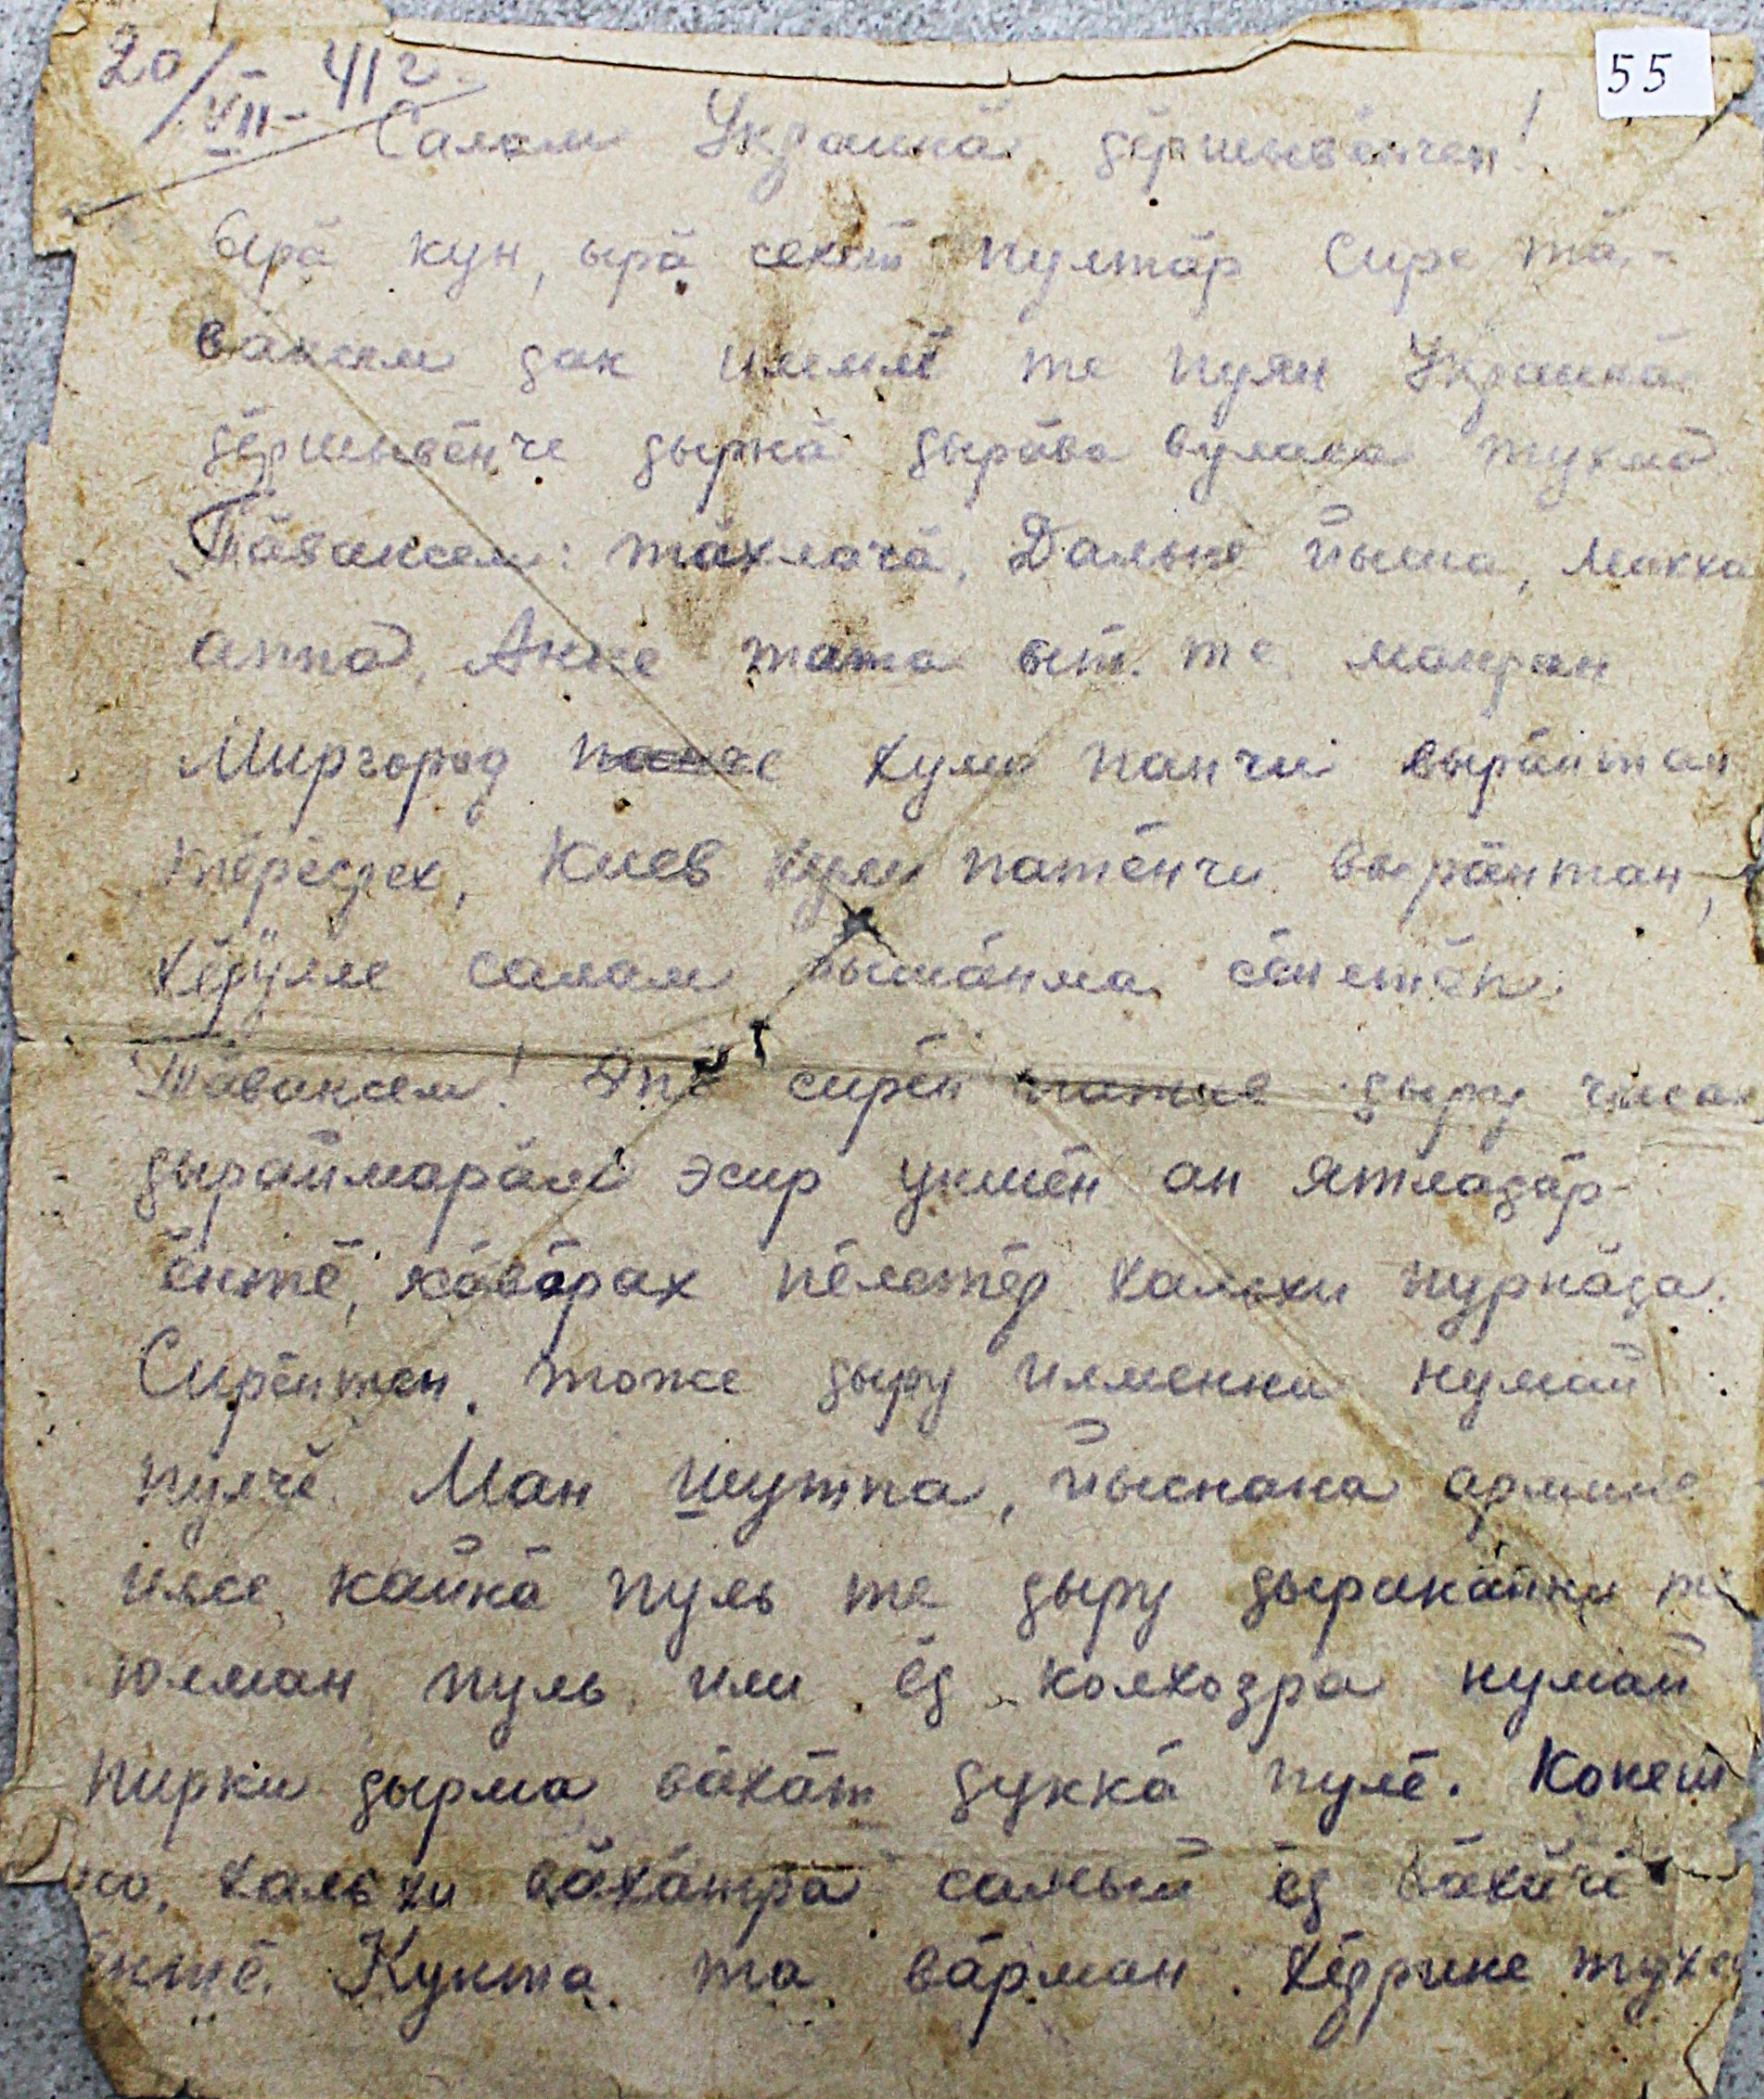 55
20/VII-41г.
Салам Украинӑ ҫӗршывӗнчен!
Ырӑ кун, ырӑ сехет пултӑр Сире тӑ-
вансем ҫак илемлӗ те пуян Украинӑ
ҫӗршывӗнче ҫырнӑ ҫырӑва вулама тухнӑ
Тӑвансем: тӑхлачӑ, Далыне йыша, Микка
аппа, Анне тата ыт. те манран
Миргород хули панчи вырӑнтан
тӗрӗсрех, Киев хули патӗнчи вырӑнтан,
хӗрӳллӗ салам йышӑнма сӗнетӗп.
Тӑвансем! Эпӗ сирӗн патӑва ҫыру часах
ҫыраймарӑм эсир укшӗн ан ятлаҫӑр
ӗнтӗ, хӑвӑрах пӗлетӗр хальхи пурнӑҫа.
Сирӗнтен тоже ҫыру илменни нумай
пулчӗ. Ман шутпа, йыснана армине
илсе кайнӑ пуль те ҫыру ҫыракӑнни те
юлман пуль или ӗҫ колхозра нумай
пирки ҫырма вӑхӑт ҫуккӑ пулӗ. Конеш
но, хальхи вӑхӑтра самый ӗҫ вӑхӑчӗ
ӗнтӗ. Кунта та вӑрман хӗррине тухса